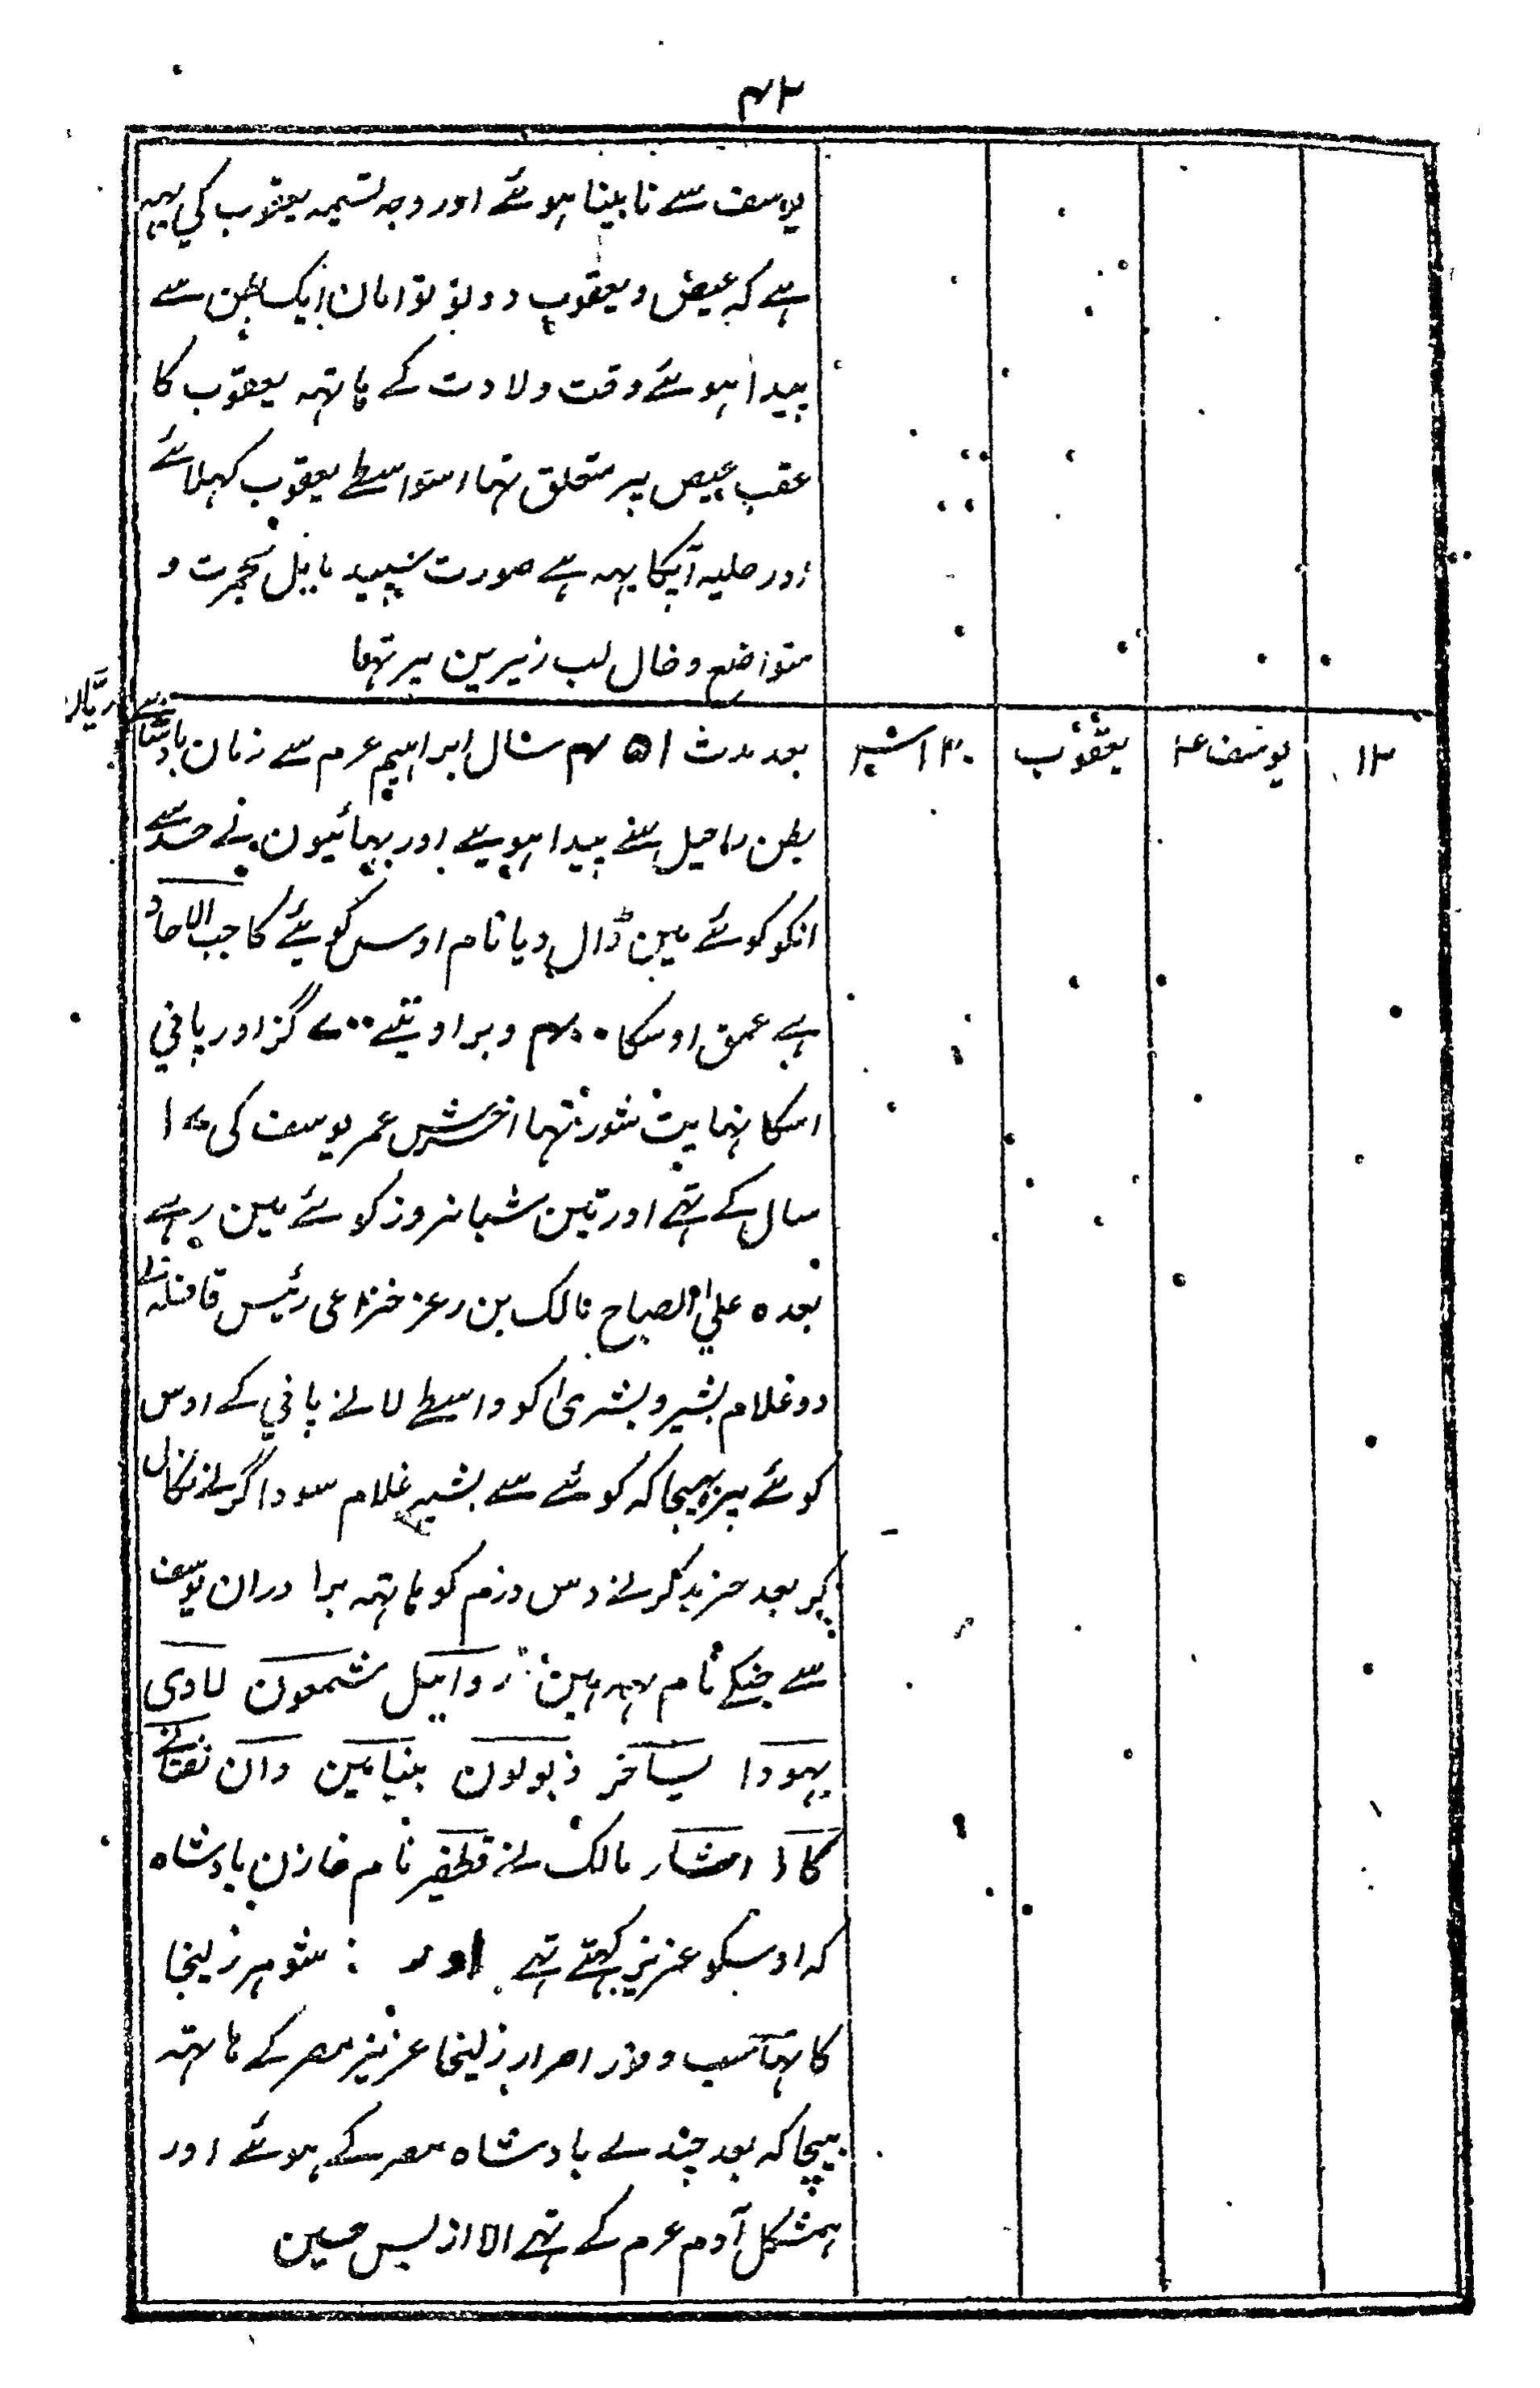 ۴۲
یوسف سے نابینا ہوئے اور وجہ تسمیہ یعقوب کی یہہ
ہے کہ عیص و یعقوب دونو توامان ایک بطن سے
پیدا ہوئے وقت ولادت کے ہاتہہ یعقوب کا
عقب عیص پر متعلق تہا اسواسطے یعقوب کہلائے
اور حلیہ آپکا یہہ ہے صورت سپید مایل بحمرت و
متواضع و خال لب زیرین پر تہا
۱۲ یوسف ع یعقوب ۱۲۰
بعد مدت ۴۵۱ سال ابراہیم عرم سے زمان بادشاہے ریان
بطن راحیل سے پیدا ہوے اور بہائیون نے حسد سے
انکو کوئے مین ڈال دیا نام اوس کوئے کا جب الاحاد
ہے عمق اوسکا ۴۰۰ و براویتے ۷۰۰ گز اور پانی
اسکا نہایت شور تہا اخرش عمر یوسف کی ۱۷
سال کے تہے اور تین شبانروز کوئے مین رہے
بعدہ علی الصباح مالک بن رعر خزاعی رئیس قافلہ نے
دو غلام بشیر و بشریٰ کو واسطے لانے پانی کے اوس
کوئے پر بہیجا کہ کوئے سے بشیر غلام سوداگر نے نکال
کر بعد خرید کرنے دس درم کو ہاتہہ برادران یوسف
سے جنکے نام یہہ ہین روابیل شمعون لاوی
یہودا یساخر زبولون بنیامین دان نفتالے
کاد امشار مالک نے قطفیر نام خازن بادشاہ
کہ اوسکو عزیز کہتے تہے اور : شوہر زلیخا
کا تہا حسب وفور اصرار زلیخا عزیز مصر کے ہاتہہ
بیچا کہ بعد چندے بادشاہ مصر کے ہوئے اور
ہمشکل آدم عرم کے تہے الا از بس حسین